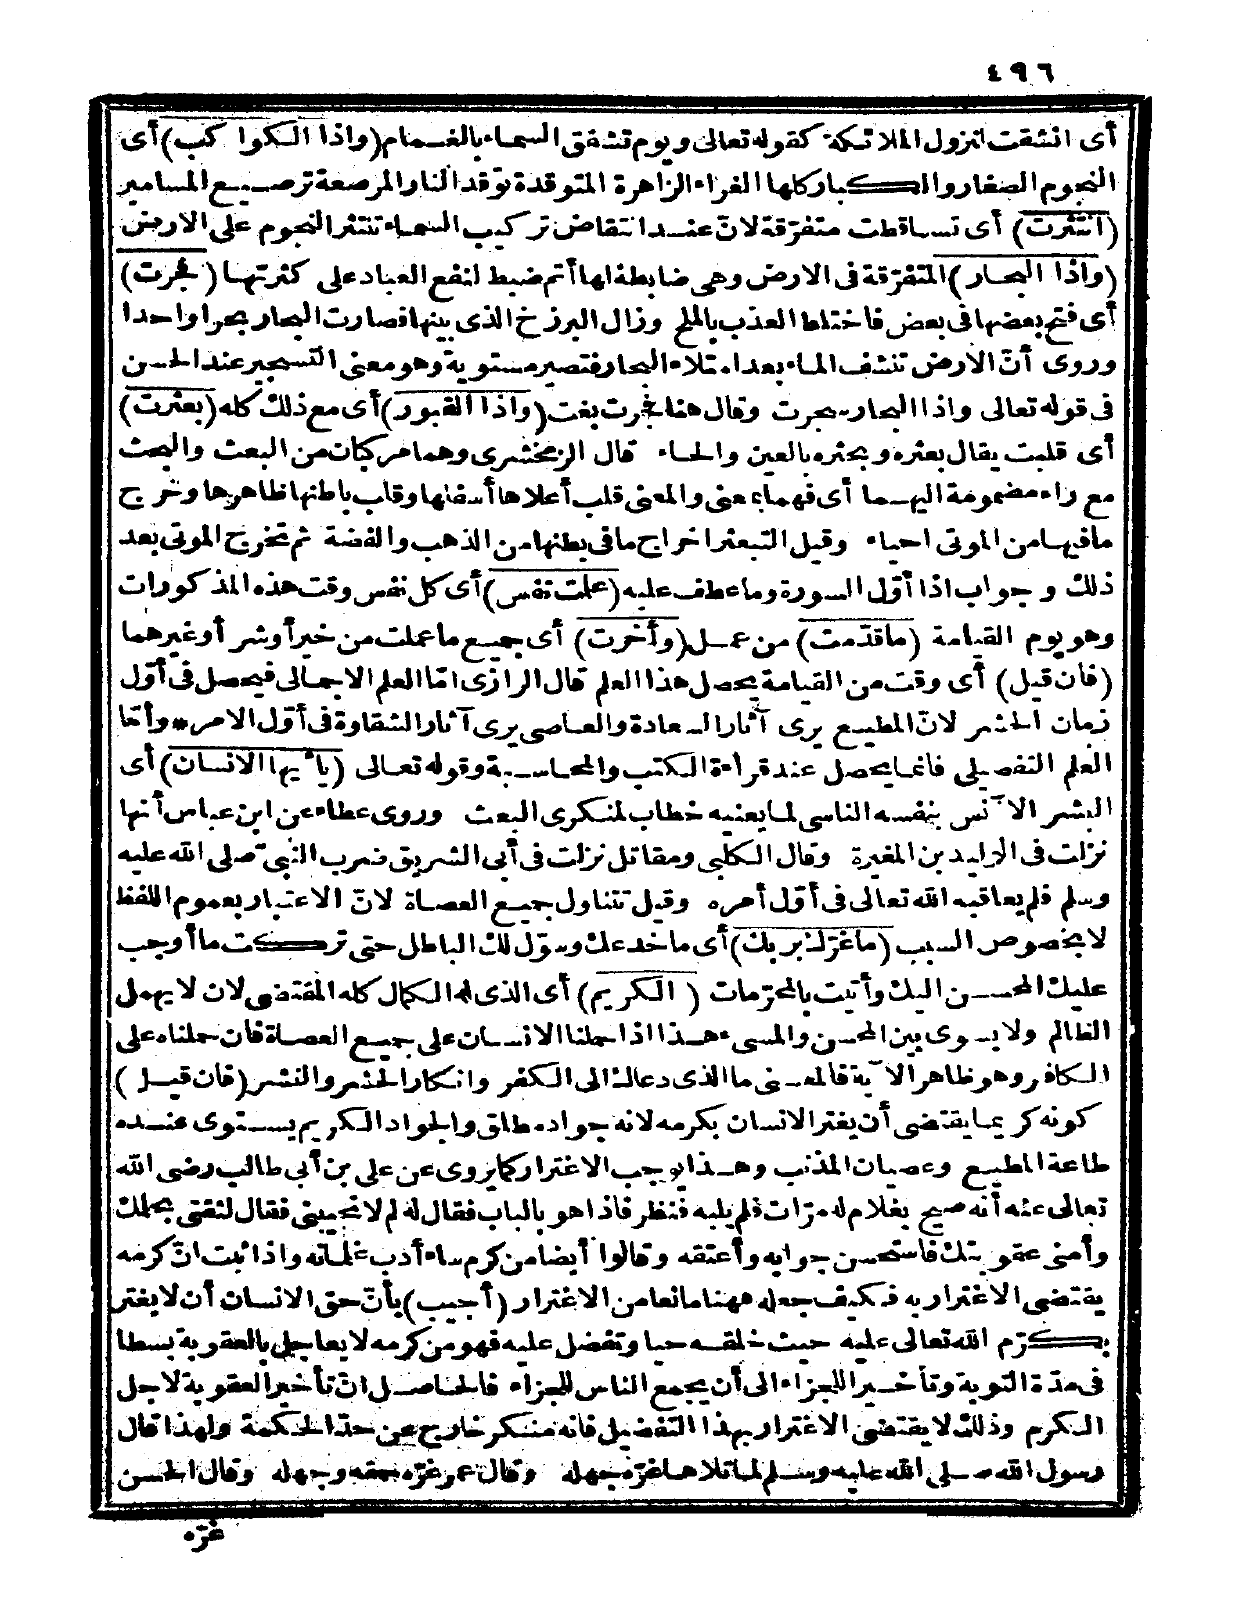 ٤٩٦
أى انشقت لنزول الملائكة كقوله تعالى ويوم تشقق السماء بالغمام (واذا الكواكب) أى
النجوم الصغار والكبار كلها الغراء الزاهرة المتوقدة توقد النار المرصعة ترصيع المسامير
(انتثرت) أى تساقطت متفرّقة لانّ عند انتقاض تركيب السماء تنتثر النجوم على الارض
(واذا البحار) المتفرّقة فى الارض وهى ضابطة لها أتم ضبط لنفع العباد على كثرتها (فجرت)
أى فتح بعضها فى بعض فاختلط العذب بالملح وزال البرزخ الذى بينها فصارت البحار بحرا واحدا
وروى أنّ الارض تنشف الماء بعد امتلاء البحار فتصير مستوية وهو معنى التسجير عند الحسن
فى قوله تعالى واذا البحار سجرت وقال هنا فجرت بغت (واذا القبور) أى مع ذلك كله (بعثرت)
أى قلبت يقال بعثره وبحثره بالعين والحاء قال الزمخشرى وهما مركبان من البعث والبحث
مع راء مضمومة اليهما أى فهما بمعنى والمعنى قلب أعلاها أسفلها وقلب باطنها ظاهرها وخرج
ما فيها من الموتى احياء وقيل التبعثر اخراج ما فى بطنها من الذهب والفضة ثم تخرج الموتى بعد
ذلك وجواب اذا أوّل السورة وما عطف عليه (علمت نفس) أى كل نفس وقت هذه المذكورات
وهو يوم القيامة (ما قدّمت) من عمل (وأخرت) أى جميع ما عملت من خير أو شر أو غيرهما
(فان قيل) أى وقت من القيامة يحصل هذا العلم قال الرازى امّا العلم الاجمالى فيحصل فى أوّل
زمان الحشر لانّ المطيع يرى آثار السعادة والعاصى يرى آثار الشقاوة فى أوّل الامر * وأمّا
العلم التفصيلى فانما يحصل عند قراءة الكتب والمحاسبة وقوله تعالى (يأيها الانسان) أى
البشر الآنس بنفسه الناسى لما يعنيه خطاب لمنكرى البعث وروى عطاء عن ابن عباس أنها
نزلت فى الوليد بن المغيرة وقال الكلبى ومقاتل نزلت فى أبى الشريق ضرب النبىّ صلى الله عليه
وسلم فلم يعاقبه الله تعالى فى أوّل أمره وقيل تتناول جميع العصاة لانّ الاعتبار بعموم اللفظ
لا بخصوص السبب (ما غرّك بربك) أى ما خدعك وسوّل لك الباطل حتى تركت ما أوجب
عليك المحسن اليك وأتيت بالمحرّمات (الكريم) أى الذى له الكمال كله المقتضى لان لا يهمل
الظالم ولا يسوى بين المحسن والمسىء هذا اذا حملنا الانسان على جميع العصاة فان حملناه على
الكافر وهو ظاهر الآية فالمعنى ما الذى دعاك الى الكفر وانكار الحشر والنشر (فان قيل)
كونه كريما يقتضى أن يغتر الانسان بكرمه لانه جواد مطلق والجواد الكريم يستوى عنده
طاعة المطيع وعصيان المذنب وهذا يوجب الاغترار كما يروى عن على بن أبى طالب رضى الله
تعالى عنه أنه صيح بغلام له مرّات فلم يلبه فنظر فاذا هو بالباب فقال له لم لا تجيبنى فقال لثقتى بحلمك
وأمنى عقوبتك فاستحسن جوابه وأعتقه وقالوا أيضا من كرم ساء أدب غلمانه واذا ثبت انّ كرمه
يقتضى الاغترار به فكيف جعله ههنا مانعا من الاغترار (أجيب) بأنّ حق الانسان أن لا يغتر
بتكرّم الله تعالى عليه حيث خلقه حيا وتفضل عليه فهو من كرمه لا يعاجل بالعقوبة بسطا
فى مدّة التوبة وتأخيرا للجزاء الى أن يجمع الناس للجزاء فالحاصل انّ تأخير العقوبة لاجل
الكرم وذلك لا يقتضى الاغترار بهذا التفضيل فانه منكر خارج عن حدّ الحكمة ولهذا قال
رسول الله صلى الله عليه وسلم لما تلاها غرّه جهله وقال عمر غرّه حمقه وجهله وقال الحسن
غرّه